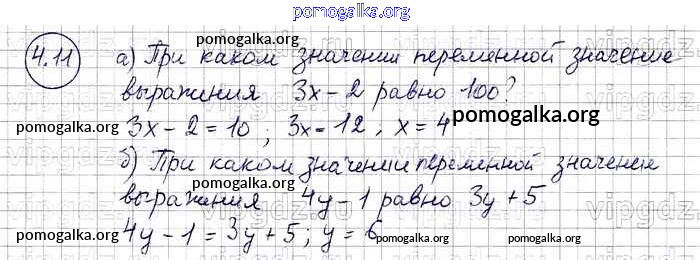 pomogalka.org
4.11 а) При каком значении переменной значение
pomogalka.org
выражения 3x - 2 равно 100?
pomogalka.org pomogalka.org
3x - 2 = 10; 3x = 12; x = 4
pomogalka.org
б) При каком значении переменной значение
pomogalka.org pomogalka.org
выражения 4y - 1 равно 3y + 5
4y - 1 = 3y + 5; y = 6
pomogalka.org pomogalka.org pomogalka.org